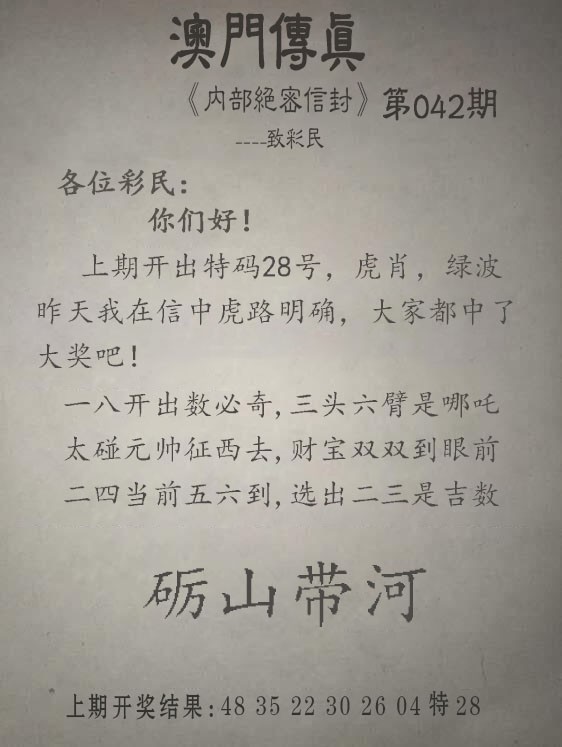 澳門傳眞
《内部絕密信封》第042期
----致彩民
各位彩民:
你们好!
上期开出特码28号，虎肖，绿波
昨天我在信中虎路明确，大家都中了
大奖吧!
一八开出数必奇,三头六臂是哪吒
太碰元帅征西去,财宝双双到眼前
二四当前五六到,选出二三是吉数
砺山带河
上期开奖结果:48 35 22 30 26 04 特 28